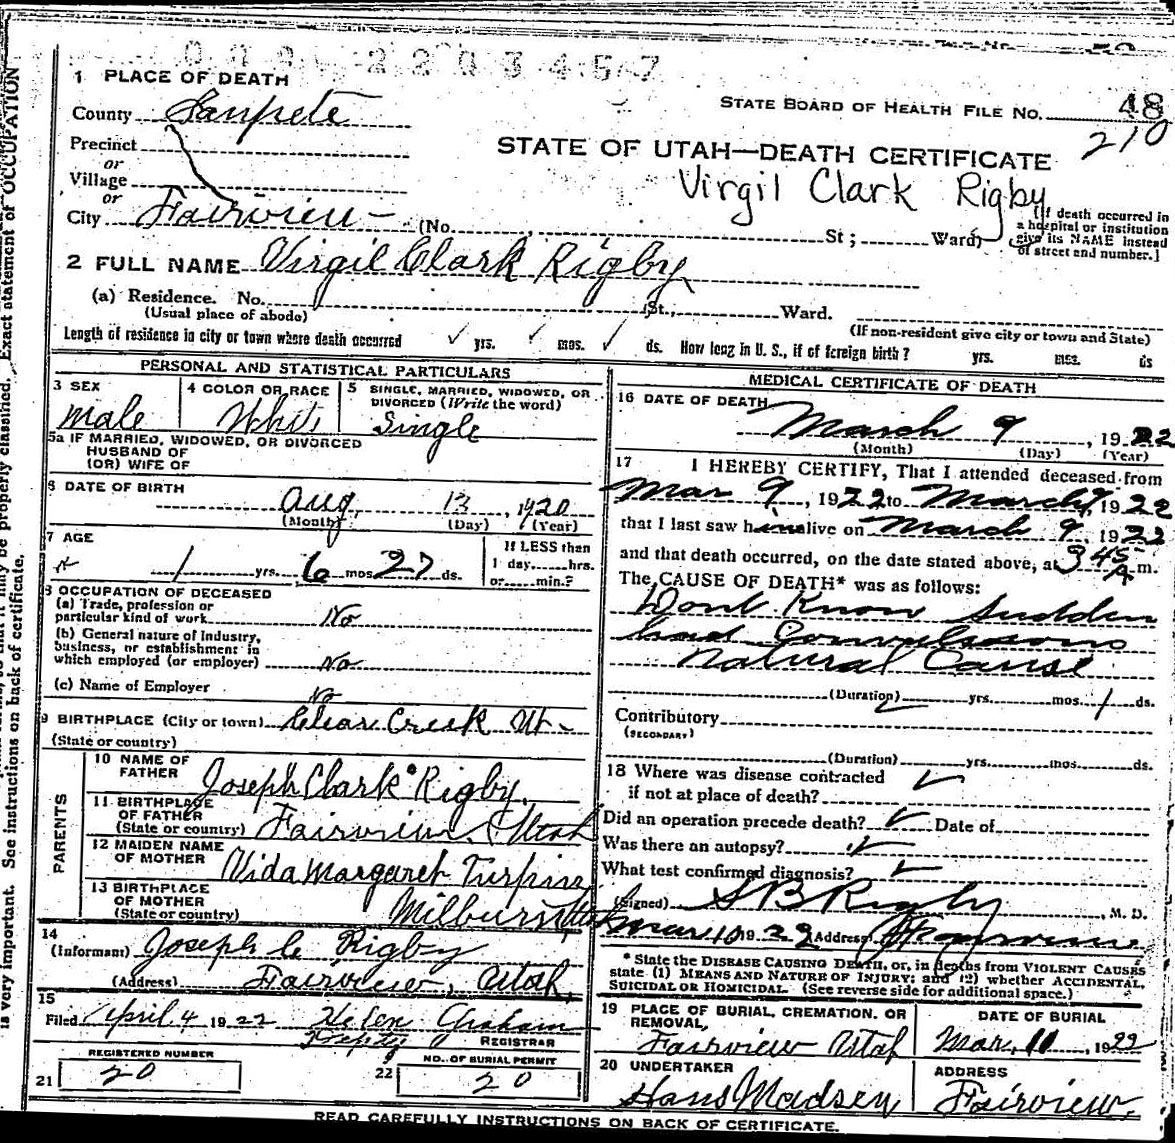 1 PLACE OF DEATH
County Sanpete
Precinct
or
Village
or
City Fairview (No. St; Ward)
STATE BOARD OF HEALTH FILE NO. 48
210
STATE OF UTAH—DEATH CERTIFICATE
Virgil Clark Rigby
[If death occurred in
a hospital or institution
give its NAME instead
of street and number.]
2 FULL NAME Virgil Clark Rigby
(a) Residence. No. St., Ward.
(Usual place of abode)
(If non-resident give city or town and State)
Length of residence in city or town where death occurred ✓ yrs. ✓ mos. ✓ ds. How long in U. S., if of foreign birth? yrs. mos. ds
PERSONAL AND STATISTICAL PARTICULARS
3 SEX
Male
4 COLOR OR RACE
White
5 SINGLE, MARRIED, WIDOWED, OR
DIVORCED (Write the word)
Single
5a IF MARRIED, WIDOWED, OR DIVORCED
HUSBAND OF
(OR) WIFE OF
6 DATE OF BIRTH
Aug. 13, 1920
(Month) (Day) (Year)
7 AGE
1 yrs. 6 mos 27 ds.
If LESS than
1 day.....hrs.
or.....min.?
8 OCCUPATION OF DECEASED
(a) Trade, profession or
particular kind of work No
(b) General nature of Industry,
business, or establishment in
which employed (or employer) No
(c) Name of Employer No
9 BIRTHPLACE (City or town) Clear Creek Ut
(State or country)
PARENTS
10 NAME OF
FATHER Joseph Clark Rigby
11 BIRTHPLACE
OF FATHER
(State or country) Fairview, Utah
12 MAIDEN NAME
OF MOTHER Vida Margaret Turpin
13 BIRTHPLACE
OF MOTHER
(State or country) Milburn, Utah
14
(Informant) Joseph C Rigby
(Address) Fairview, Utah,
15
Filed April 4 1922 Helen Graham
Deputy REGISTRAR
REGISTERED NUMBER
21 20
NO. OF BURIAL PERMIT
22 20
MEDICAL CERTIFICATE OF DEATH
16 DATE OF DEATH
March 9, 1922
(Month) (Day) (Year)
17 I HEREBY CERTIFY, That I attended deceased from
Mar 9, 1922 to March 9, 1922
that I last saw him alive on March 9, 1922
and that death occurred, on the date stated above, at 3 45 A m.
The CAUSE OF DEATH* was as follows:
Dont Know Sudden
had Convulsions
Natural Cause
(Duration) yrs. mos. 1 ds.
Contributory
(SECONDARY)
(Duration) yrs. mos. ds.
18 Where was disease contracted
if not at place of death? ✓
Did an operation precede death? ✓ Date of
Was there an autopsy? ✓
What test confirmed diagnosis? ✓
(Signed) S B Rigby, M. D.
Mar 10 1922 Address Fairview
* State the DISEASE CAUSING DEATH, or, in deaths from VIOLENT CAUSES
state (1) MEANS AND NATURE OF INJURY; and (2) whether ACCIDENTAL,
SUICIDAL OR HOMICIDAL. (See reverse side for additional space.)
19 PLACE OF BURIAL, CREMATION, OR
REMOVAL,
Fairview Utah
DATE OF BURIAL
Mar. 11, 1922
20 UNDERTAKER
Hans Madsen
ADDRESS
Fairview.
READ CAREFULLY INSTRUCTIONS ON BACK OF CERTIFICATE.
is very important. See instructions on back of certificate.
it may be properly classified. Exact statement of OCCUPATION